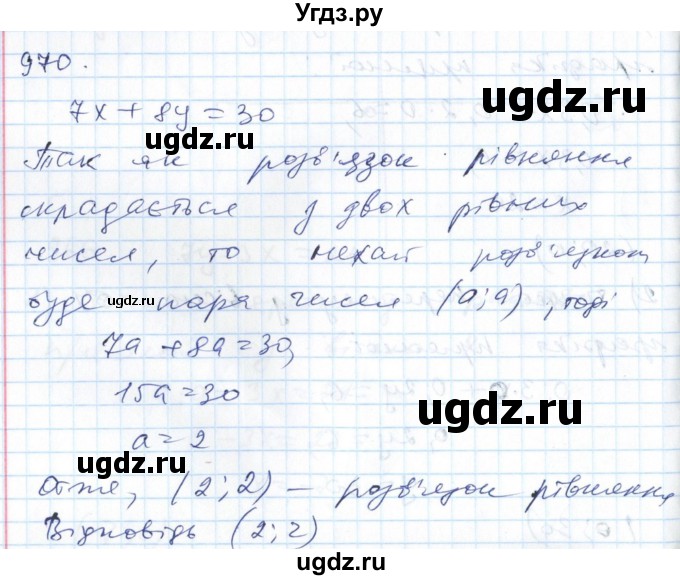 Угдз.ру
970.
7x + 8y = 30
ugdz.ru
Так як розв'язок рівняння
складається з двох рівних
чисел, то нехай розв'язком
буде пара чисел (a; a), тоді
ugdz.ru
7a + 8a = 30,
15a = 30
ugdz.ru
a = 2
ugdz.ru
Отже, (2; 2) – розв'язок рівняння
Відповідь (2; 2)
ugdz.ru
ugdz.ru